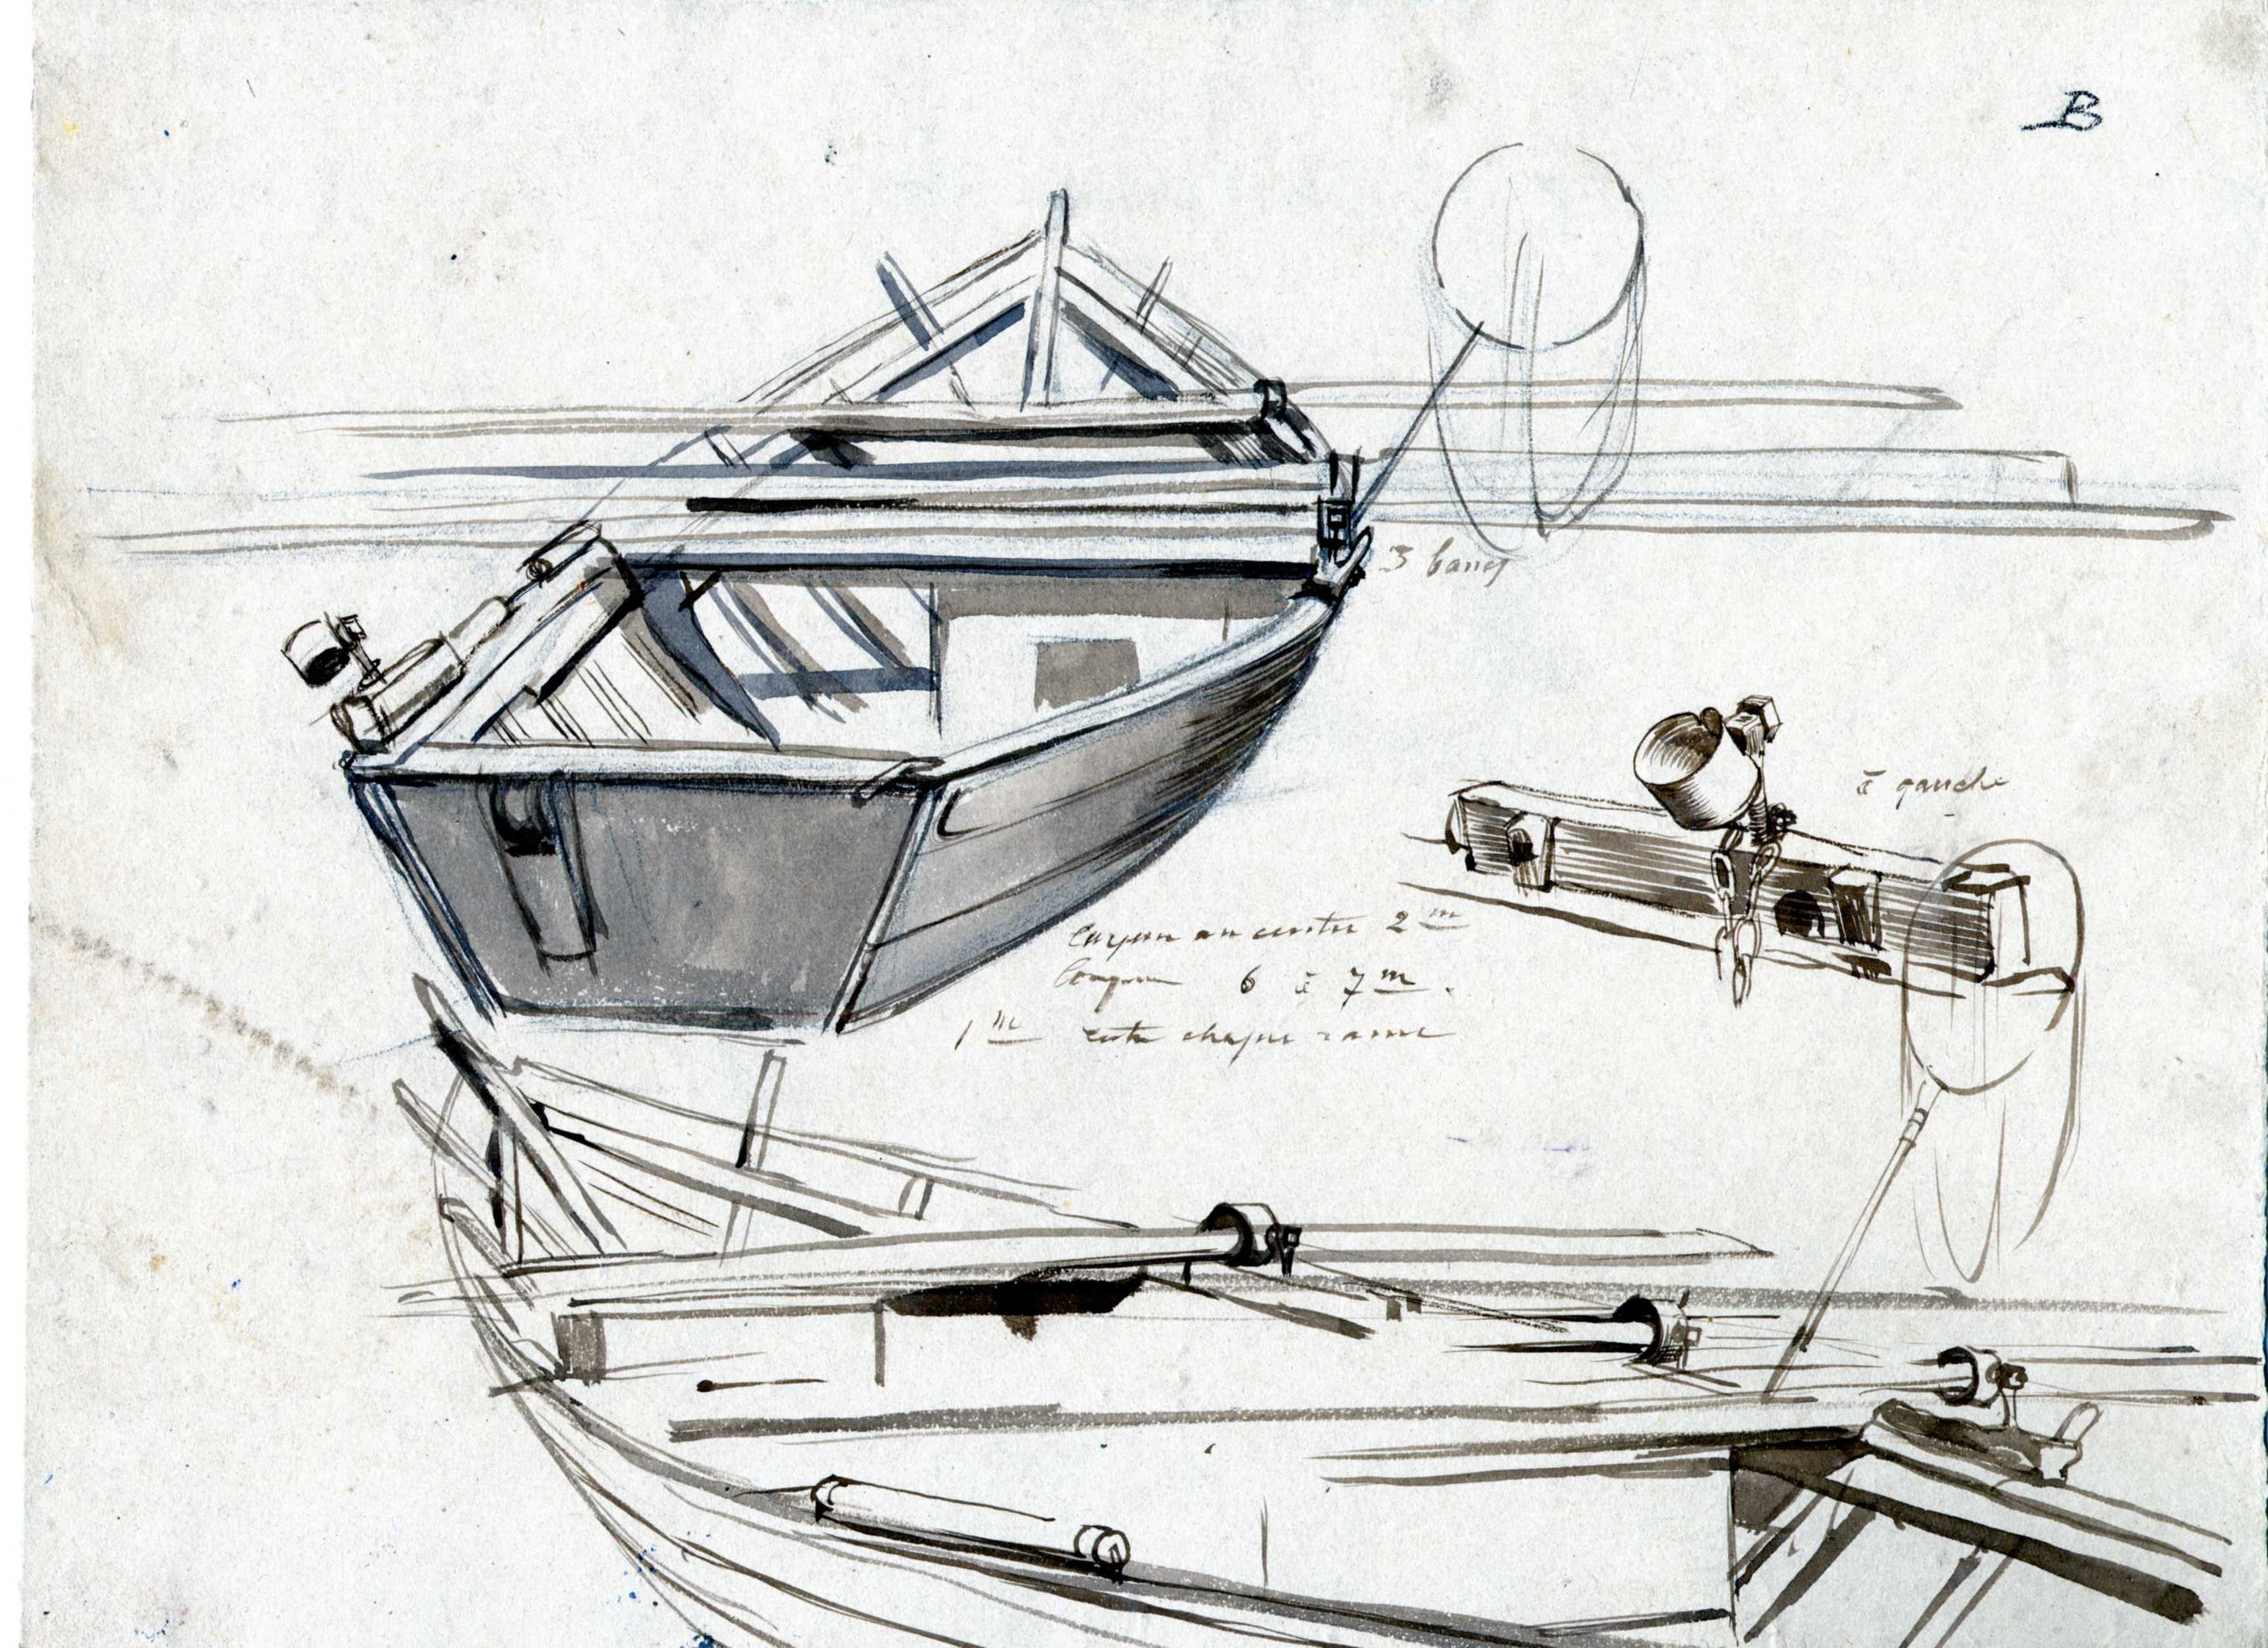 B
3 bancs
à gauche
largeur au centre 2 m
longueur 6 à 7 m.
1 m entre chaque rame